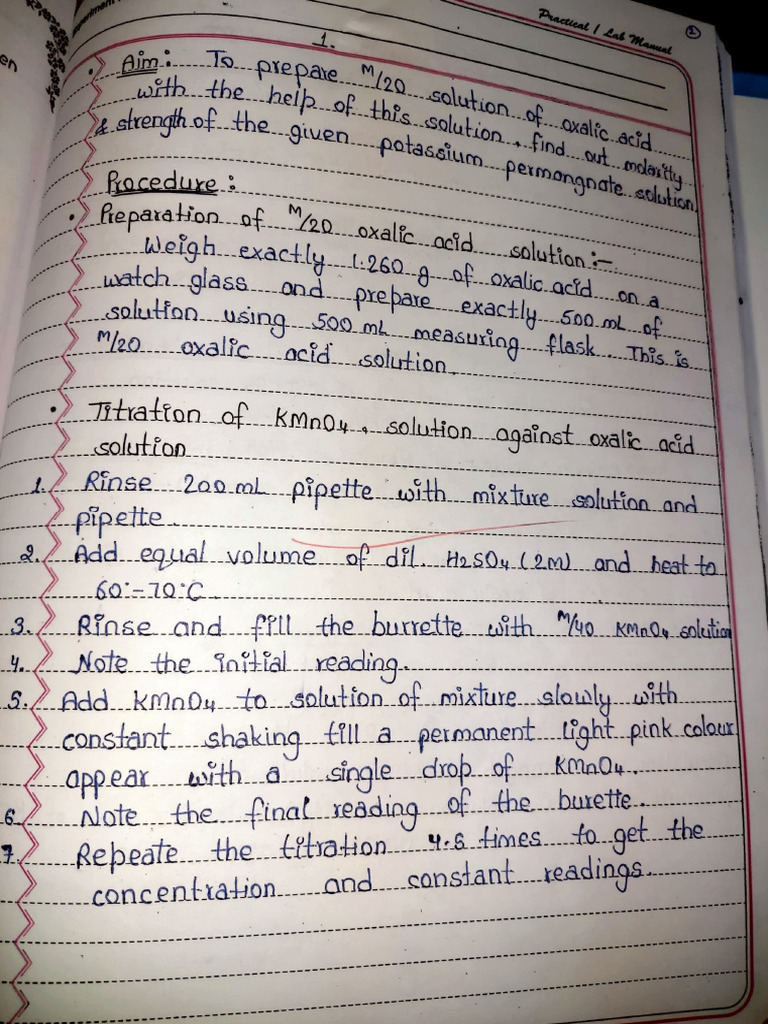 Practical / Lab Manual
2
1.
• Aim: To prepare M/20 solution of oxalic acid
with the help of this solution, find out molarity
& strength of the given potassium permongnate solution
Procedure:
• Preparation of M/20 oxalic acid solution:-
Weigh exactly 1.260 g of oxalic acid on a
watch glass and prepare exactly 500 mL of
solution using 500 mL measuring flask. This is
M/20 oxalic acid solution.
• Titration of KMnO4, solution against oxalic acid
solution
1. Rinse 200 mL pipette with mixture solution and
pipette.
2. Add equal volume of dil. H2SO4 (2M) and heat to
60°-70°C
3. Rinse and fill the burrette with M/40 KMnO4 solution
4. Note the initial reading.
5. Add KMnO4 to solution of mixture slowly with
constant shaking till a permanent light pink colour
appear with a single drop of KMnO4.
6. Note the final reading of the burette.
7. Repeate the titration 4.5 times to get the
concentration and constant readings.